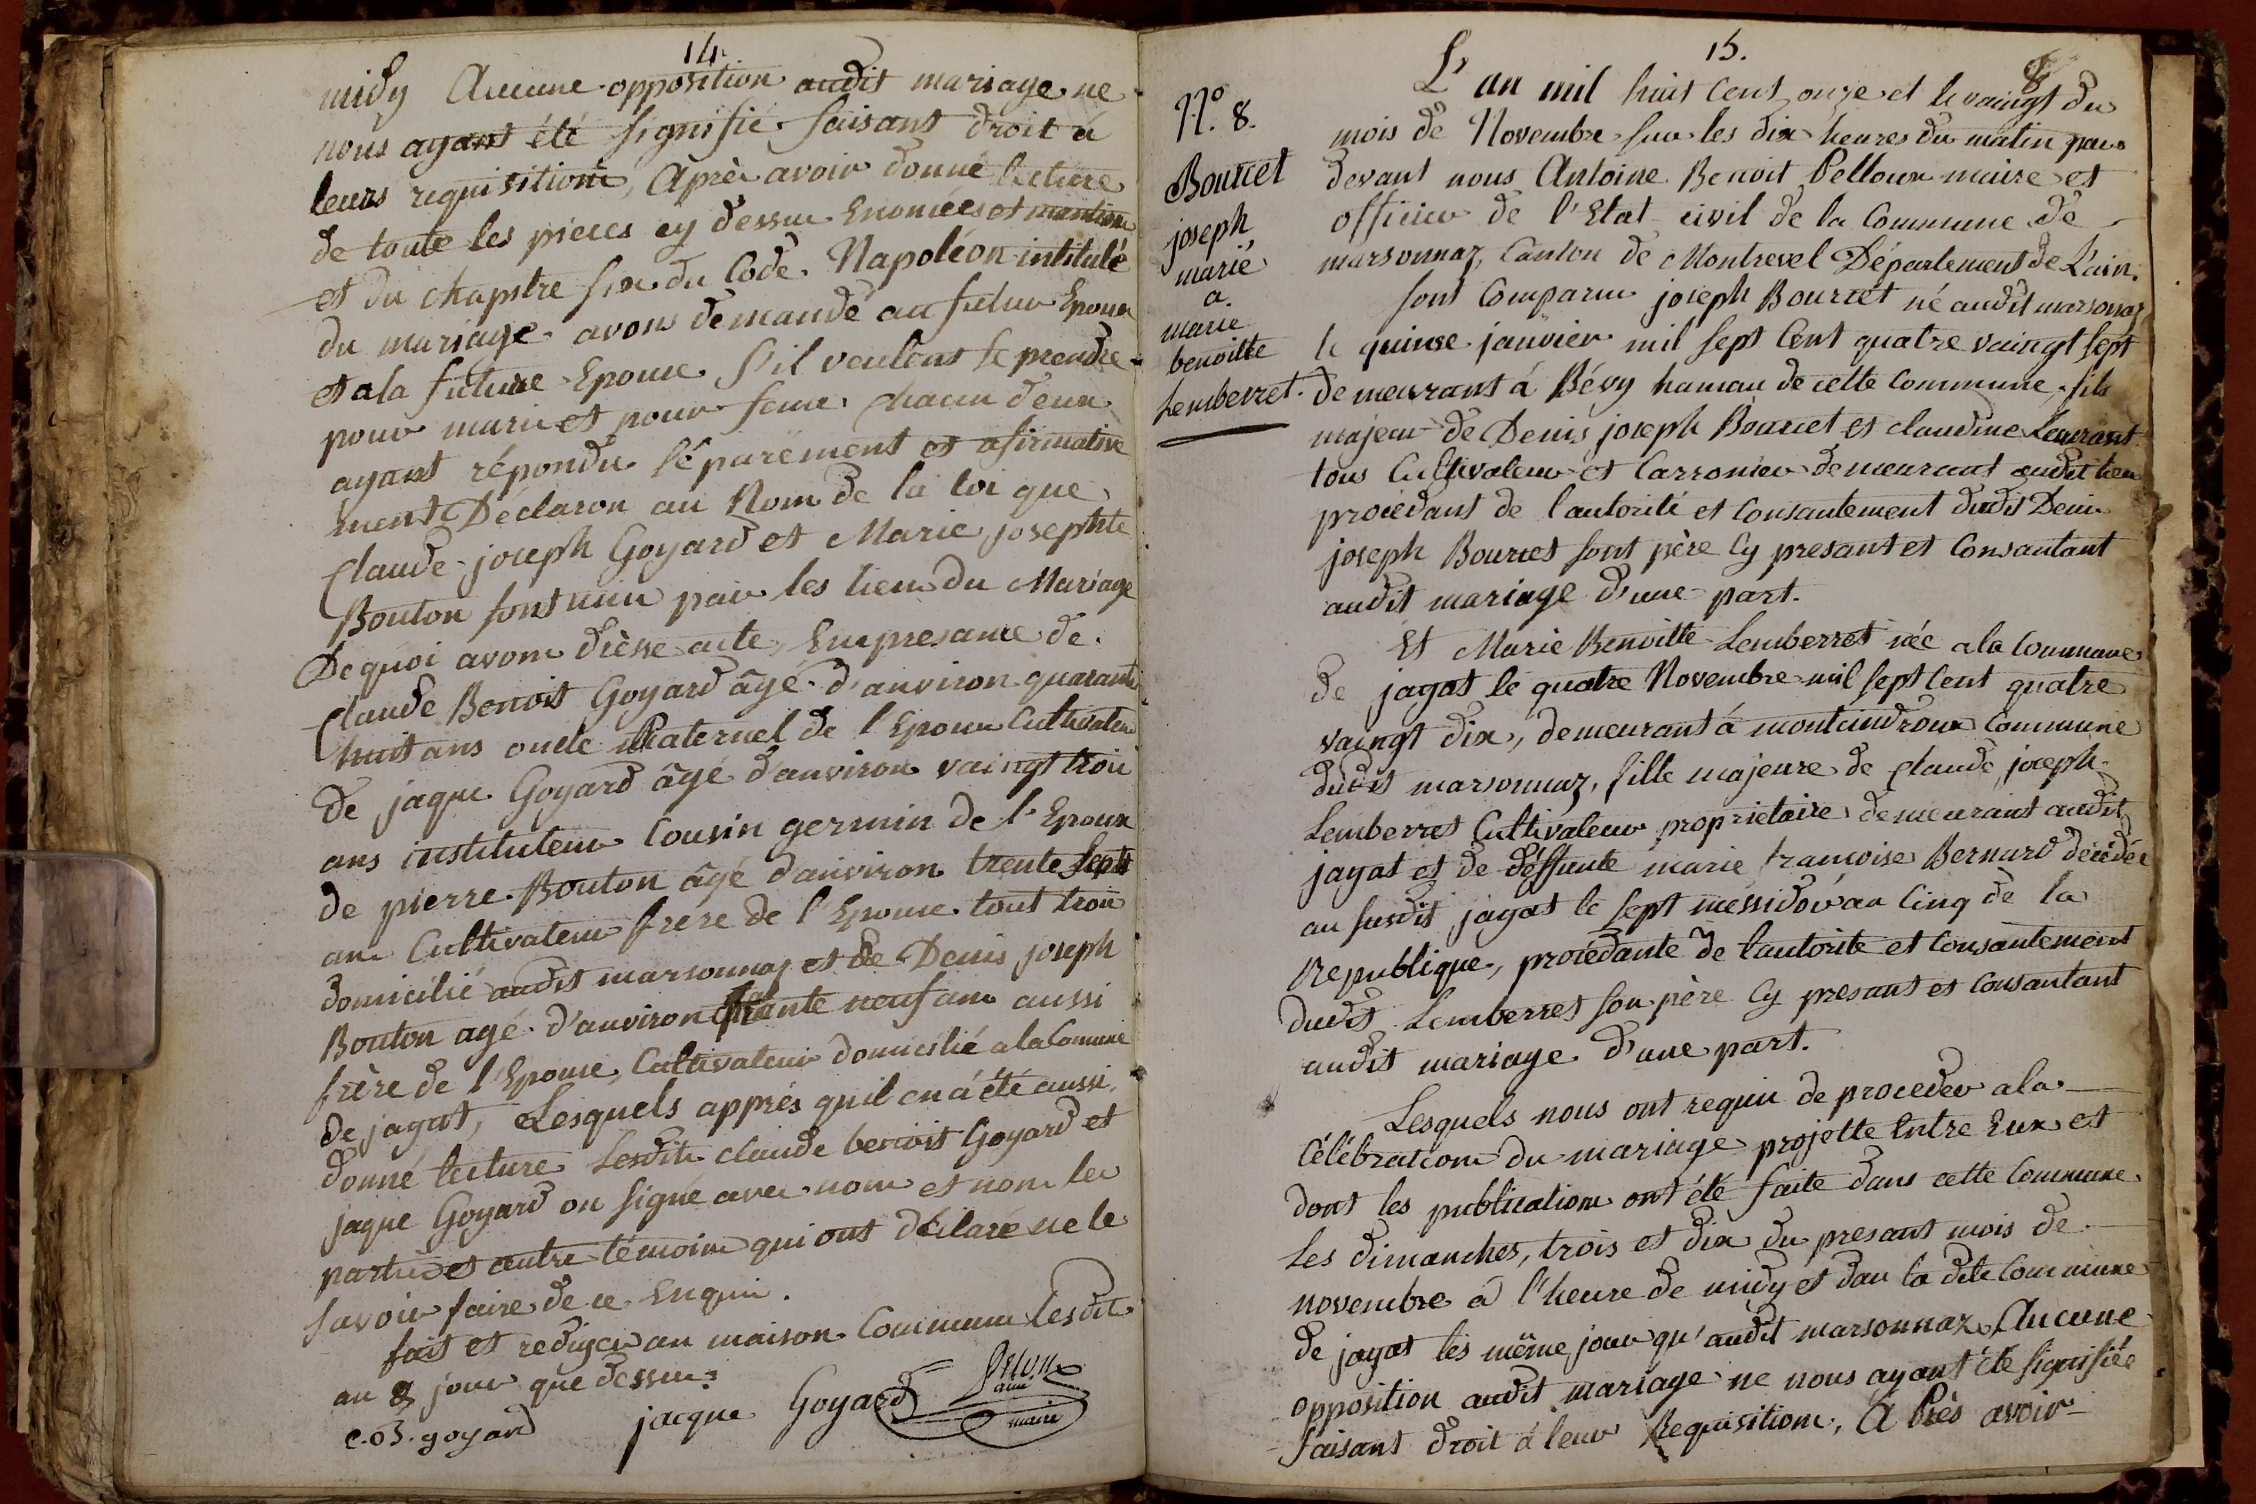 14.
midy Aucune opposition audit mariage ne
nous ayant été signifié faisant droit á
leurs requisitions, Après avoir donné lecture
de toute les pieces cy dessu Enoncées et mention
et du chapitre six du Code Napoléon intitulé
du mariage avons demandé au futur Epoux
et a la future Epouse S'il veulent se prendre
pour mari et pour feme chacun d'eux
ayant répondu séparément et afirmative
ment Déclaron au Nom de la loi que
Claude joseph Goyard et Marie josephte
Bouton sont unis par les liens du Mariage
De quoi avons dressé acte, En presance de
Claude Benoit Goyard âgé d'anviron quarante
huit ans oncle Paternel de l'Epoux Cultivateur
de jaque Goyard âgé d'anviron vaingt trois
ans instituteur Cousin germin de l'Epoux
de pierre Bouton âgé d'anviron trente sept
ans Cultivateur frere de l'Epouse tout trois
domicilié audit marsonnaz et de Denis joseph
Bouton agé d'anviron neuf ans aussi
frère de l'Epouse, Cultivateur domicilié a la Comune
de jayat, Lesquels apprés qu'il en á été aussi
donné lecture Lesdits claude benoit Goyard et
jaque Goyard on signé avec nous et non les
parties et autre témoins qui ont déclaré ne le
savoir faire de ce Enquis.
fait et rediger au maison Commune lesdit
an & jour que dessus
c.B. goyard jacque Goyard
maire
15.
8
N.º 8.
Bourcet
joseph
marié
a.
marie
benoitte
Lemberret.
L'an mil huit Cent onze et le vaingt du
mois de Novembre sur les dix heures du matin par
devant nous Antoine Benoit Pelloux maire et
officier de l'Etat civil de la Commune de
marsonnaz, Canton de Montrevel Département de L'ain.
sont Comparu joseph Bourcet né audit marsonnaz
le quinse janvier mil sept Cent quatre vaingt sept
demeurant á Bévy hamau de cette Commune, fils
majeur de Denis joseph Bourcet et claudine Laurant
tous Cultivateur et Carronier demeurant audit lieu
procédant de l'autorité et Consantement dudit Denis
joseph Bourcet sont père Cy presant et Consantant
audit mariage d'une part.
Et Marie Benoitte Lemberret née a la Commune
de jayat le quatre Novembre mil sept Cent quatre
vaingt dix, demeurant á montcindroux Commune
dudit marsonnaz, fille majeure de Claude joseph
Lemberret Cultivateur proprietaire demeurant audit
jayat et de deffunte marie francoise Bernard décédée
au susdit jayat le sept messidor an Cinq de la
republique, procédante de l'autorité et Consantement
dudit Lemberret son père Cy presant et Consantant
audit mariage d'une part.
Lesquels nous ont requis de proceder a la
Célébration du mariage projetté Entre Eux et
dont les publications ont été faite dans cette Commune
Les dimanches, trois et dix du presant mois de
novembre á l'heure de midy et dans la dite Commune
de jayat les même jour qu'audit marsonnaz, Aucune
opposition audit mariage ne nous ayant été signifiée
faisant droit á leur Requisition, A Près avoir